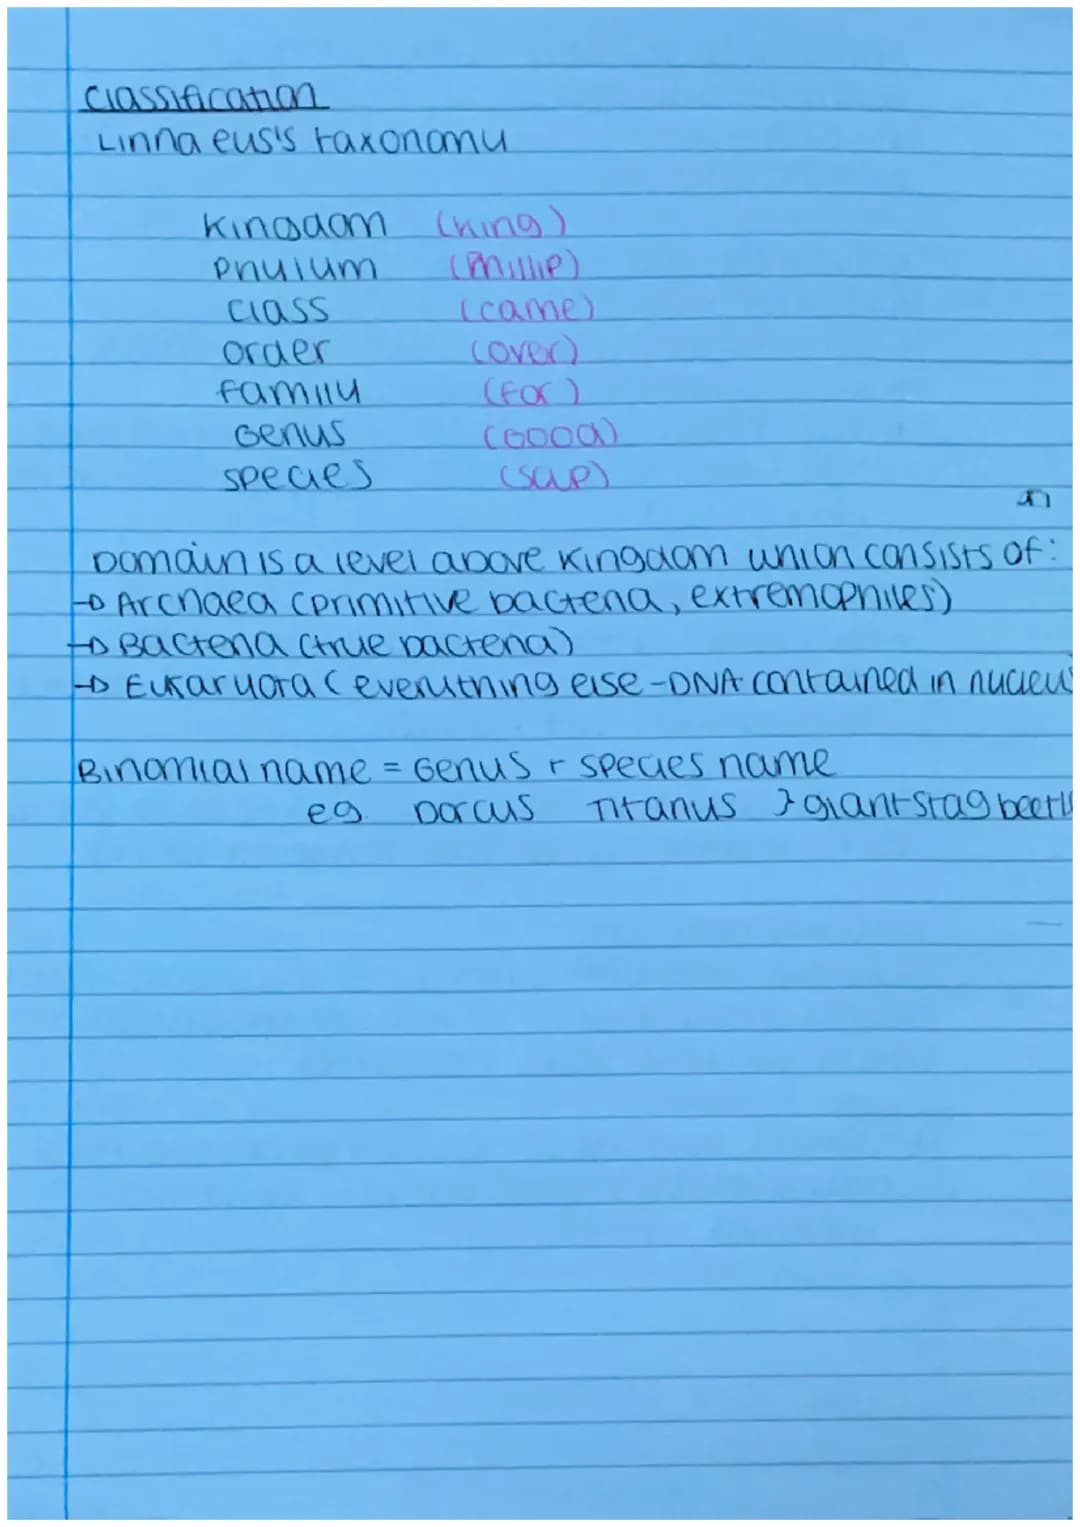 Classification
Linnaeus's taxonomy
Kingdom (King)
Phylum (Phillip)
Class (came)
Order (over)
Family (for)
Genus (Good)
Species (soup)
Domain is a level above kingdom which consists of:
→ Archaea (primitive bacteria, extremophiles)
→ Bacteria (true bacteria)
→ Eukaryota (everything else - DNA contained in nucleus
Binomial name = Genus + species name
eg. Dorcus Titanus } giant stag beetle